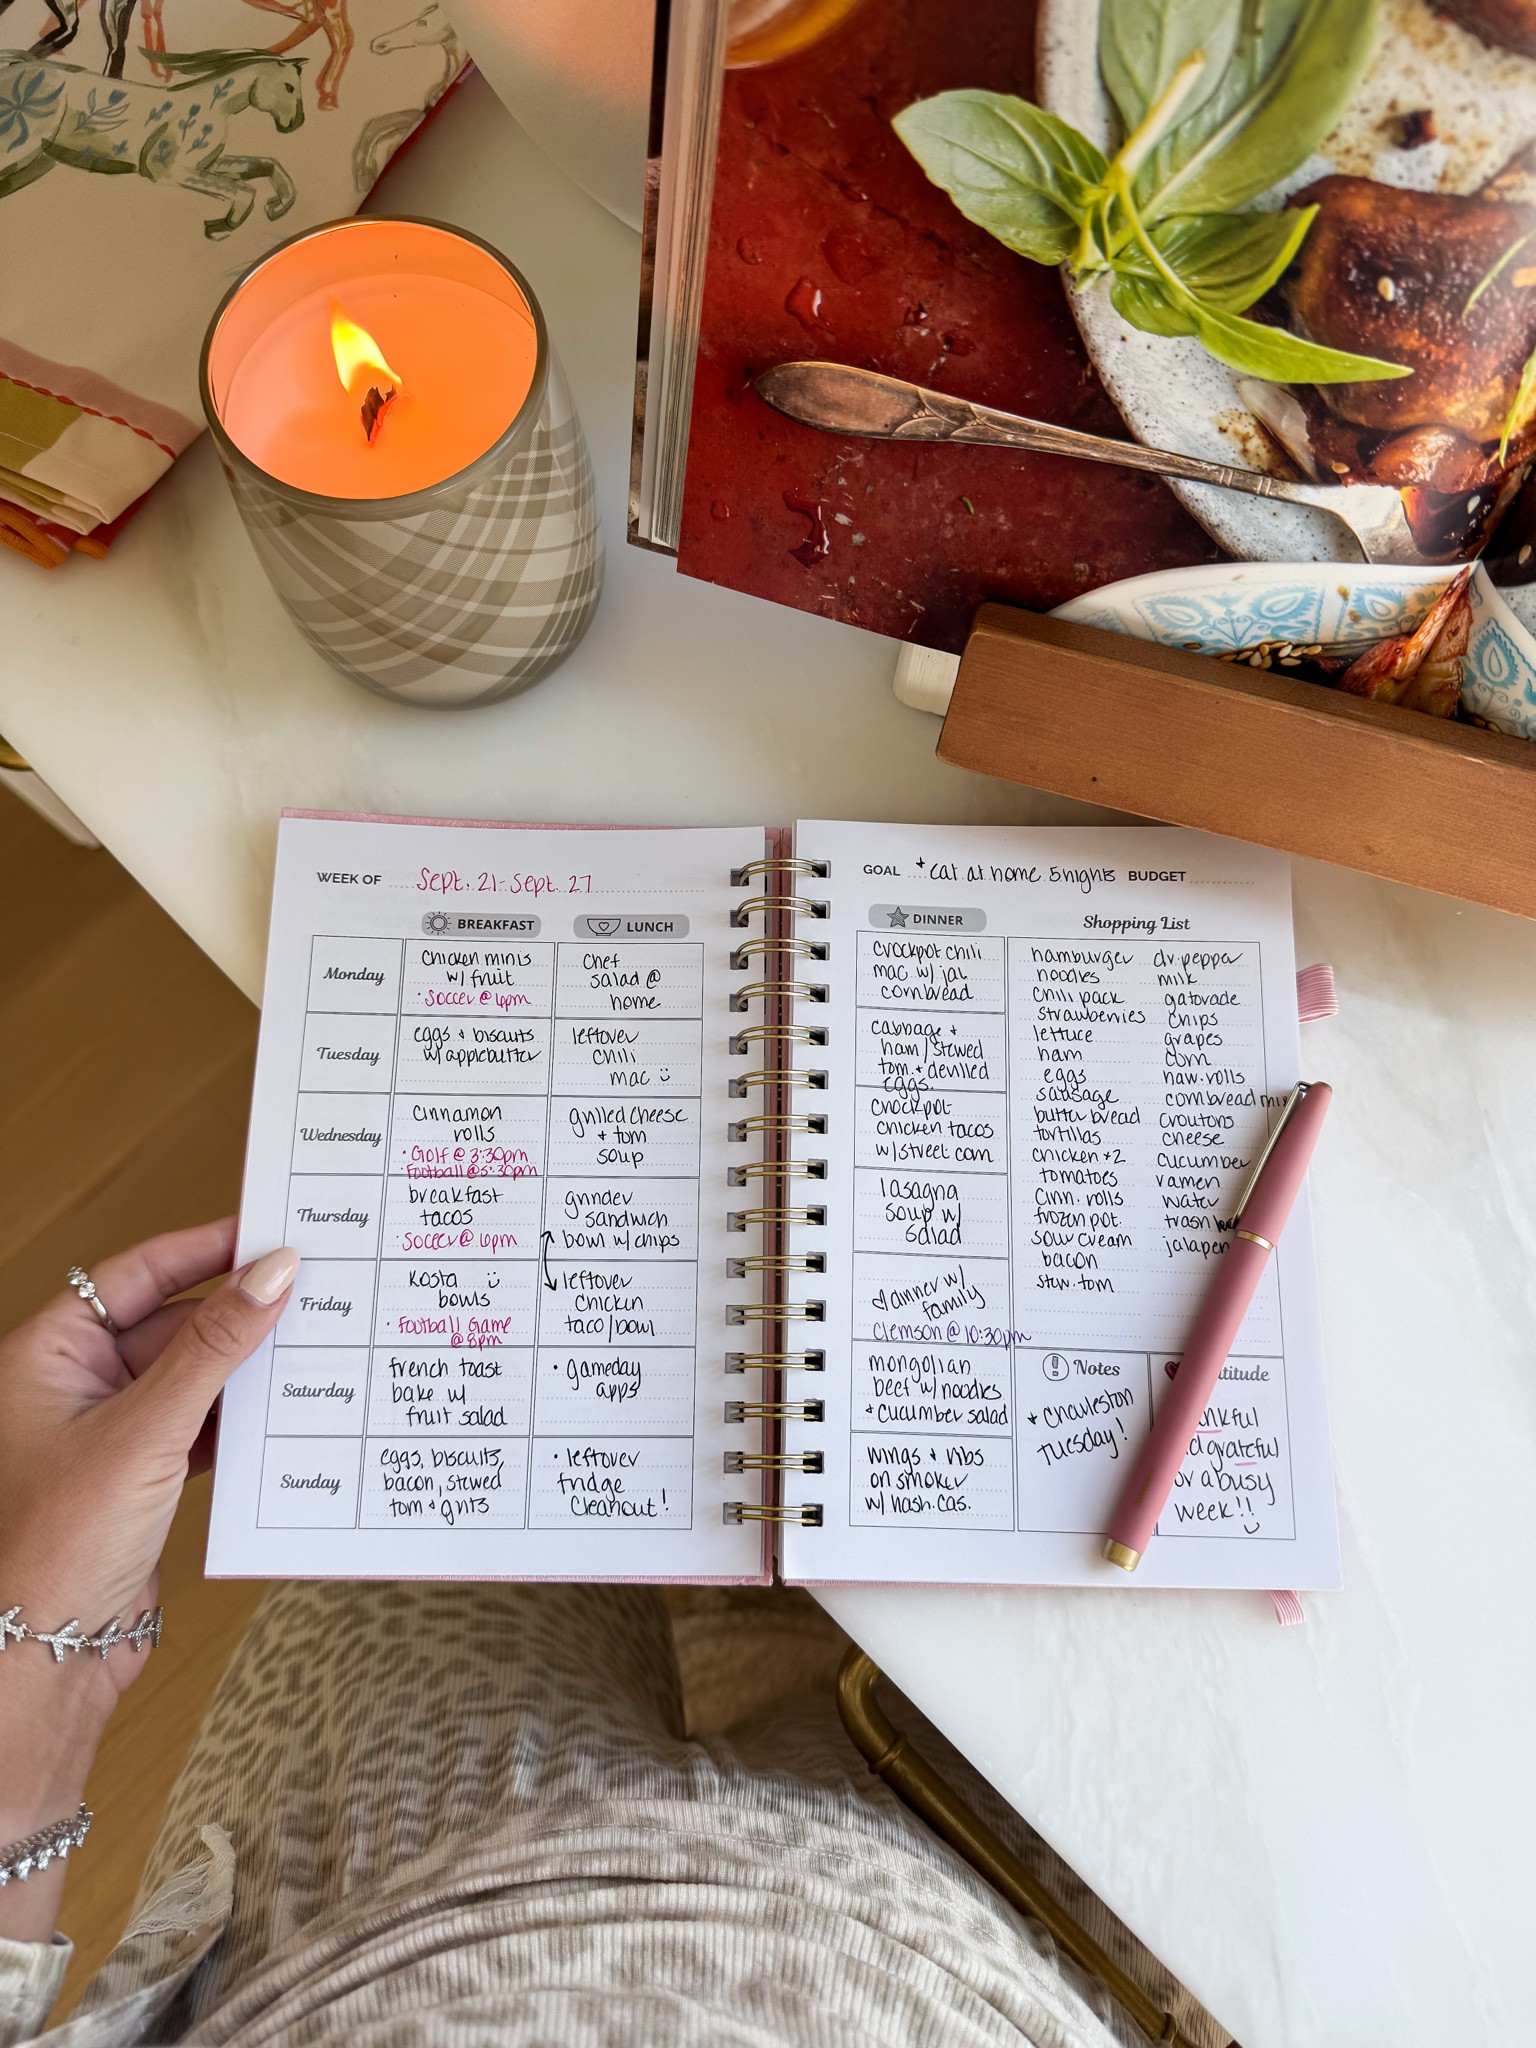 WEEK OF Sept. 21 - Sept. 27
BREAKFAST LUNCH
Monday
chicken minis
w/ fruit
• Soccer @ 6pm
chef
salad @
home
Tuesday
eggs + biscuits
w/ applebutter
leftover
chili
mac
Wednesday
cinnamon
rolls
• Golf @ 3:30pm
• Football @ 5:30pm
grilled cheese
+ tom
soup
Thursday
breakfast
tacos
• Soccer @ 6pm
grinder
sandwich
bowl w/ chips
Friday
Kosta
bowls
• Football Game
@ 8pm
leftover
chicken
taco/bowl
Saturday
french toast
bake w/
fruit salad
• gameday
apps
Sunday
eggs, biscuits,
bacon, stewed
tom + grits
• leftover
fridge
cleanout!
GOAL + eat at home 5 nights BUDGET
DINNER
crockpot chili
mac w/ jal
cornbread
cabbage +
ham / stewed
tom. + devilled
eggs.
crockpot
chicken tacos
w/ street corn
lasagna
soup w/
salad
dinner w/
family
Clemson @ 10:30pm
mongolian
beef w/ noodles
+ cucumber salad
wings + ribs
on smoker
w/ hash. cas.
Shopping List
hamburger
noodles
chili pack
strawberries
lettuce
ham
eggs
sausage
butter bread
tortillas
chicken x2
tomatoes
cinn. rolls
frozen pot.
sour cream
bacon
stew. tom
dr. pepper
milk
gatorade
chips
grapes
corn
haw. rolls
cornbread mix
croutons
cheese
cucumber
ramen
water
trash
jalapen
Notes
+ Charleston
Tuesday!
titude
nkful
d grateful
or a busy
week!!